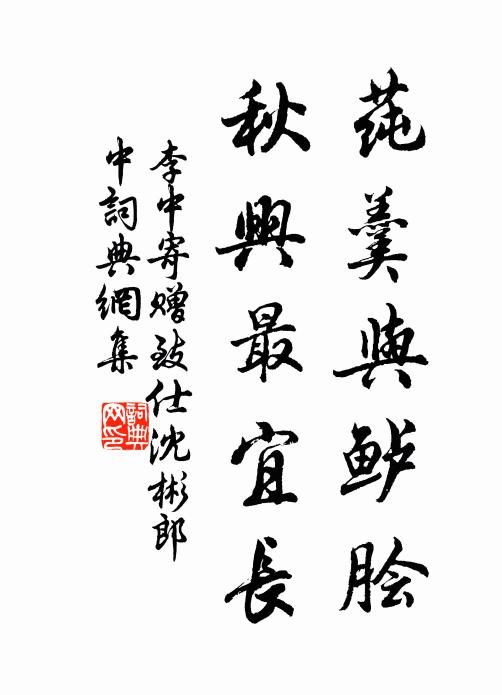 莼羹與鲈脍
秋興最宜長
李中寄赠致仕沈彬郎
中詞典網集
詞典
网印